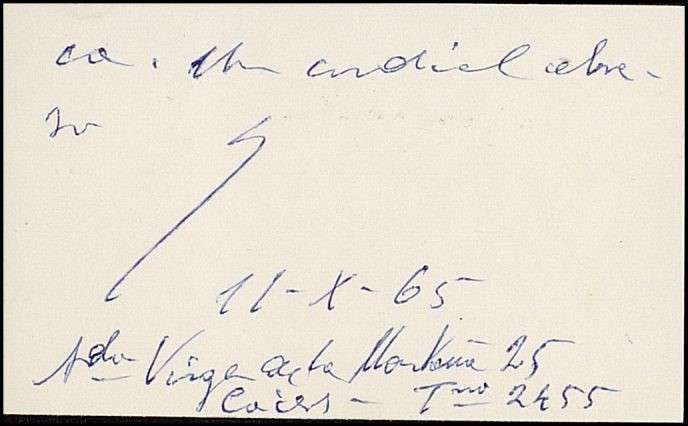 ca. Un cordial abra-
zo
11-X-65
Avda Virgen de la Montaña 25
Cáceres - Tno 2455